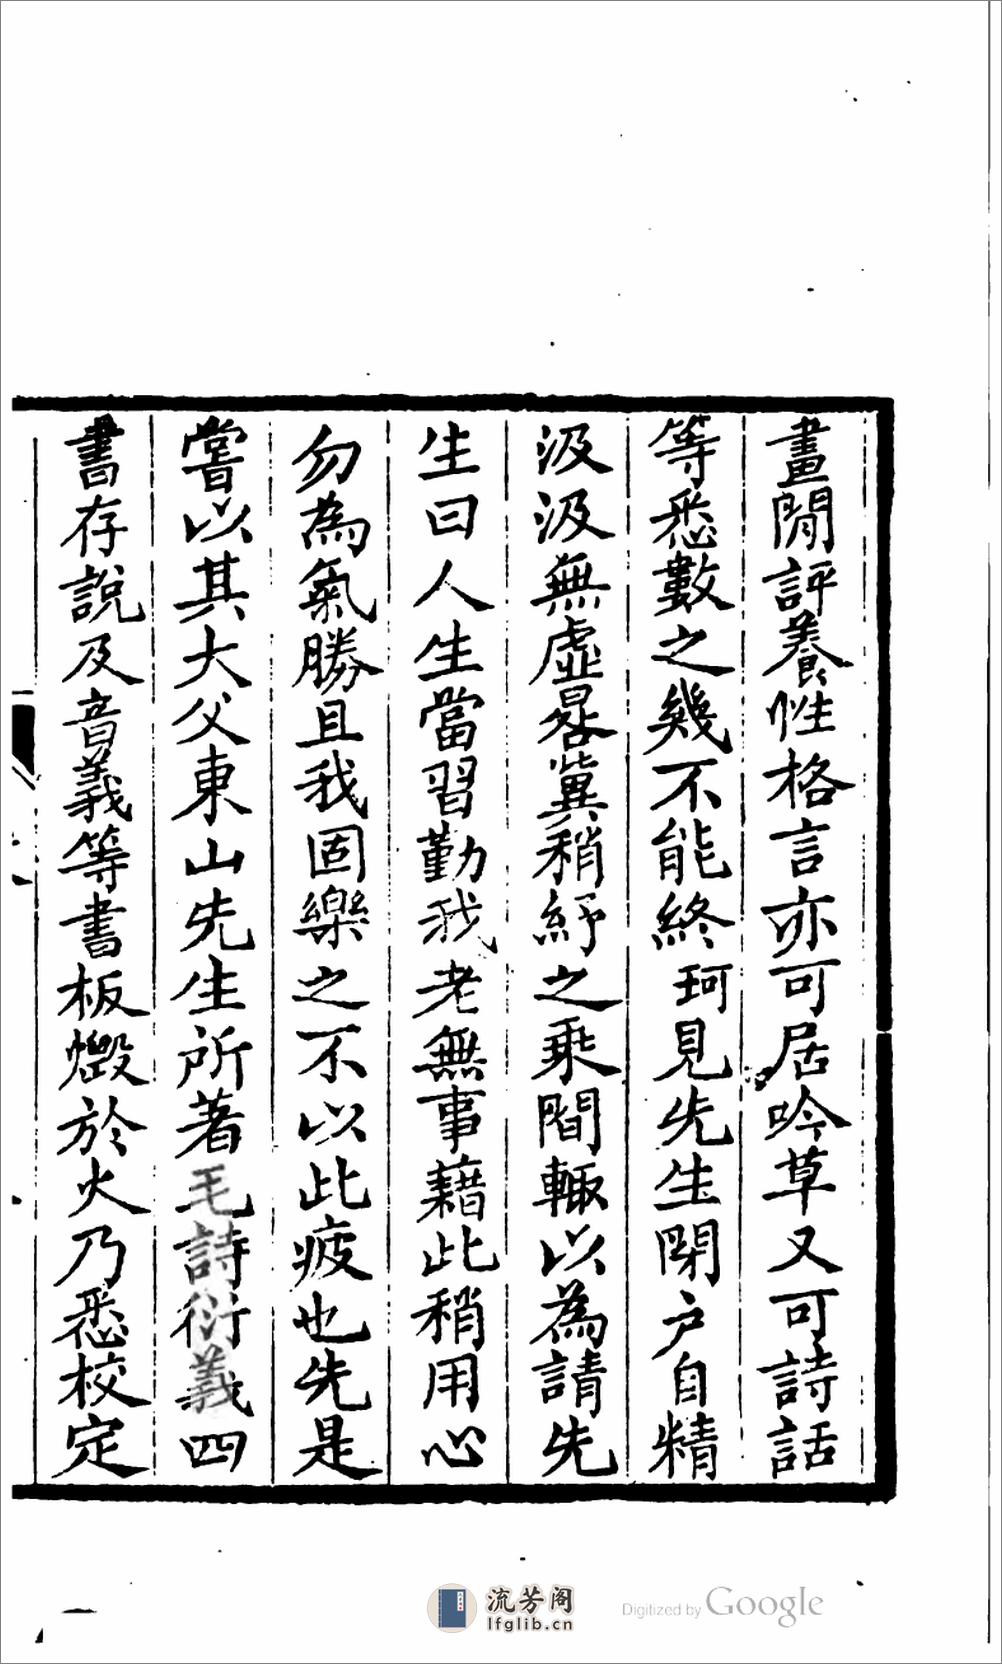 畫閒評養性格言亦可居吟草又可詩話
等悉數之幾不能終珂見先生閉戶自精
汲汲無虛晷冀稍紓之乘閒輒以為請先
生曰人生當習勤我老無事藉此稍用心
勿為氣勝且我固樂之不以此疲也先是
嘗以其大父東山先生所著毛詩衍義四
書存說及音義等書板燬於火乃悉校定
流芳阁
lfglib.cn
Digitized by Google